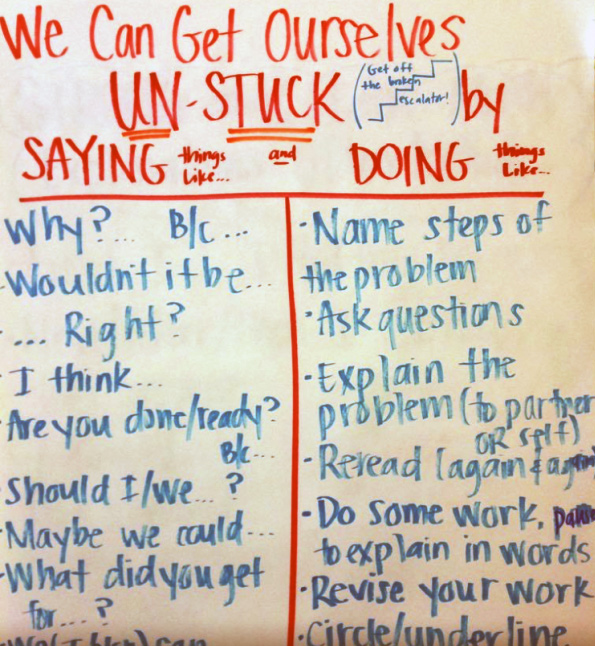 We Can Get Ourselves
UN-STUCK (Get off the broken escalator!) by
SAYING things like... and DOING things like...
Why?... B/c...
·Wouldn't it be...
·... Right?
·I think...
·Are you done/ready?
B/c...
·Should I/we...?
·Maybe we could...
·What did you get
for...?
·Name steps of
the problem
·Ask questions
·Explain the
problem (to partner
OR self)
·Reread (again & again
·Do some work,
to explain in words
·Revise your work
·Circle/underline